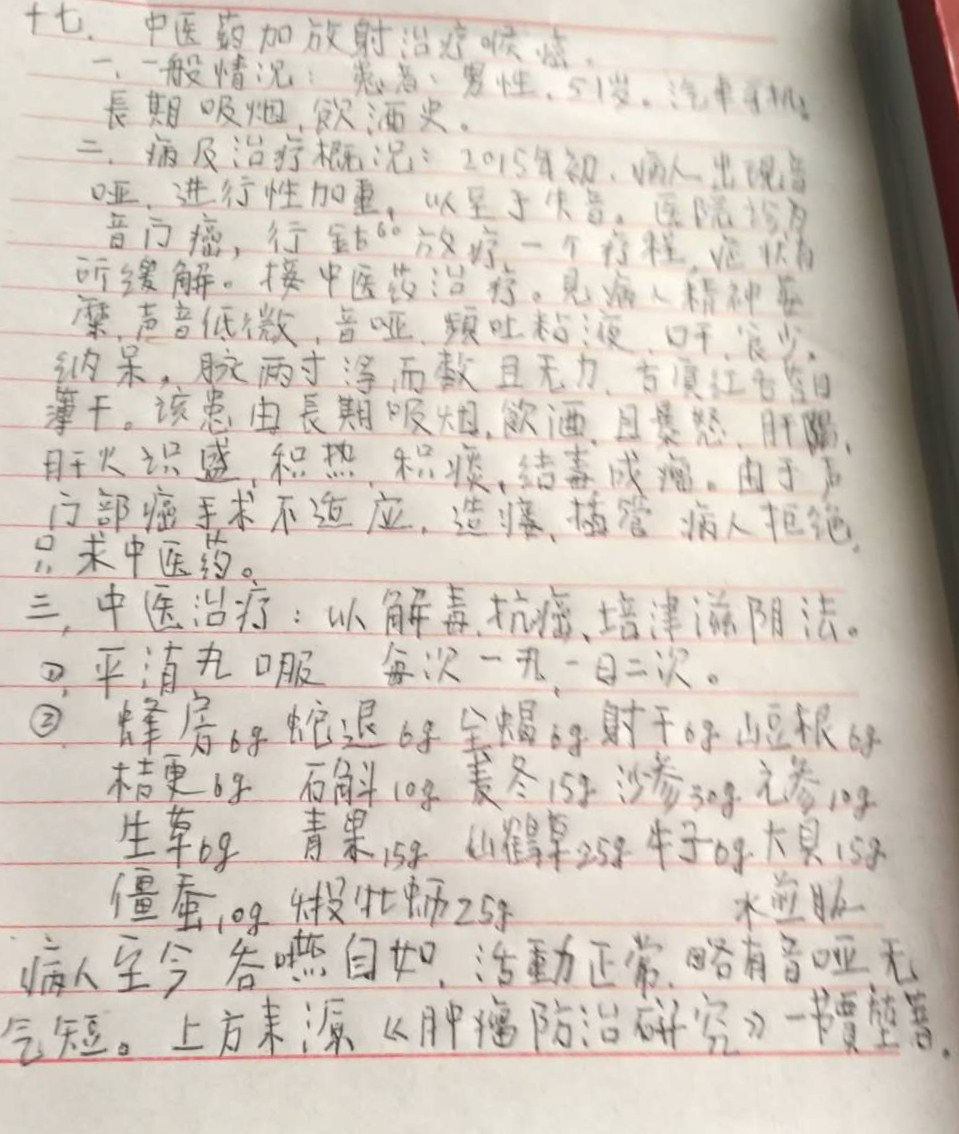 十七. 中医药加放射治疗喉癌.
一. 一般情况：患者：男性. 51岁。汽車司机.
長期吸烟. 飲酒史。
二. 病及治疗概况：2015年初. 病人出現音
哑. 进行性加重, 以至于失音。医院诊为
音门癌, 行钴⁶⁰放疗一个疗程, 症状有
所缓解。接中医药治疗。見病人精神萎
靡, 声音低微, 音哑. 頻吐粘液. 口干. 食少.
纳呆, 脉两寸浮而数且无力, 舌質红舌苔白
薄干。该患由長期吸烟, 飲酒, 且暴怒. 肝陽,
肝火炽盛, 积热, 积痰, 结毒成癌。由于声
门部癌手术不适应, 造瘘, 插管病人拒绝,
只求中医药。
三, 中医治疗：以解毒. 抗癌、培津滋阴法。
①, 平消丸口服 每次一丸, 一日二次。
② 蜂房6g 蛇退6g 全蝎6g 射干6g 山豆根6g
桔更6g 石斛10g 麦冬15g 沙参30g 元参10g
生草6g 青果15g 仙鶴草25g 牛子6g 大貝15g
僵蚕10g 煅牡蛎25g 水煎服
病人至今吞嚥自如, 活動正常. 略有音哑无
气短。上方来源《肿瘤防治研究》一书賈堃著.